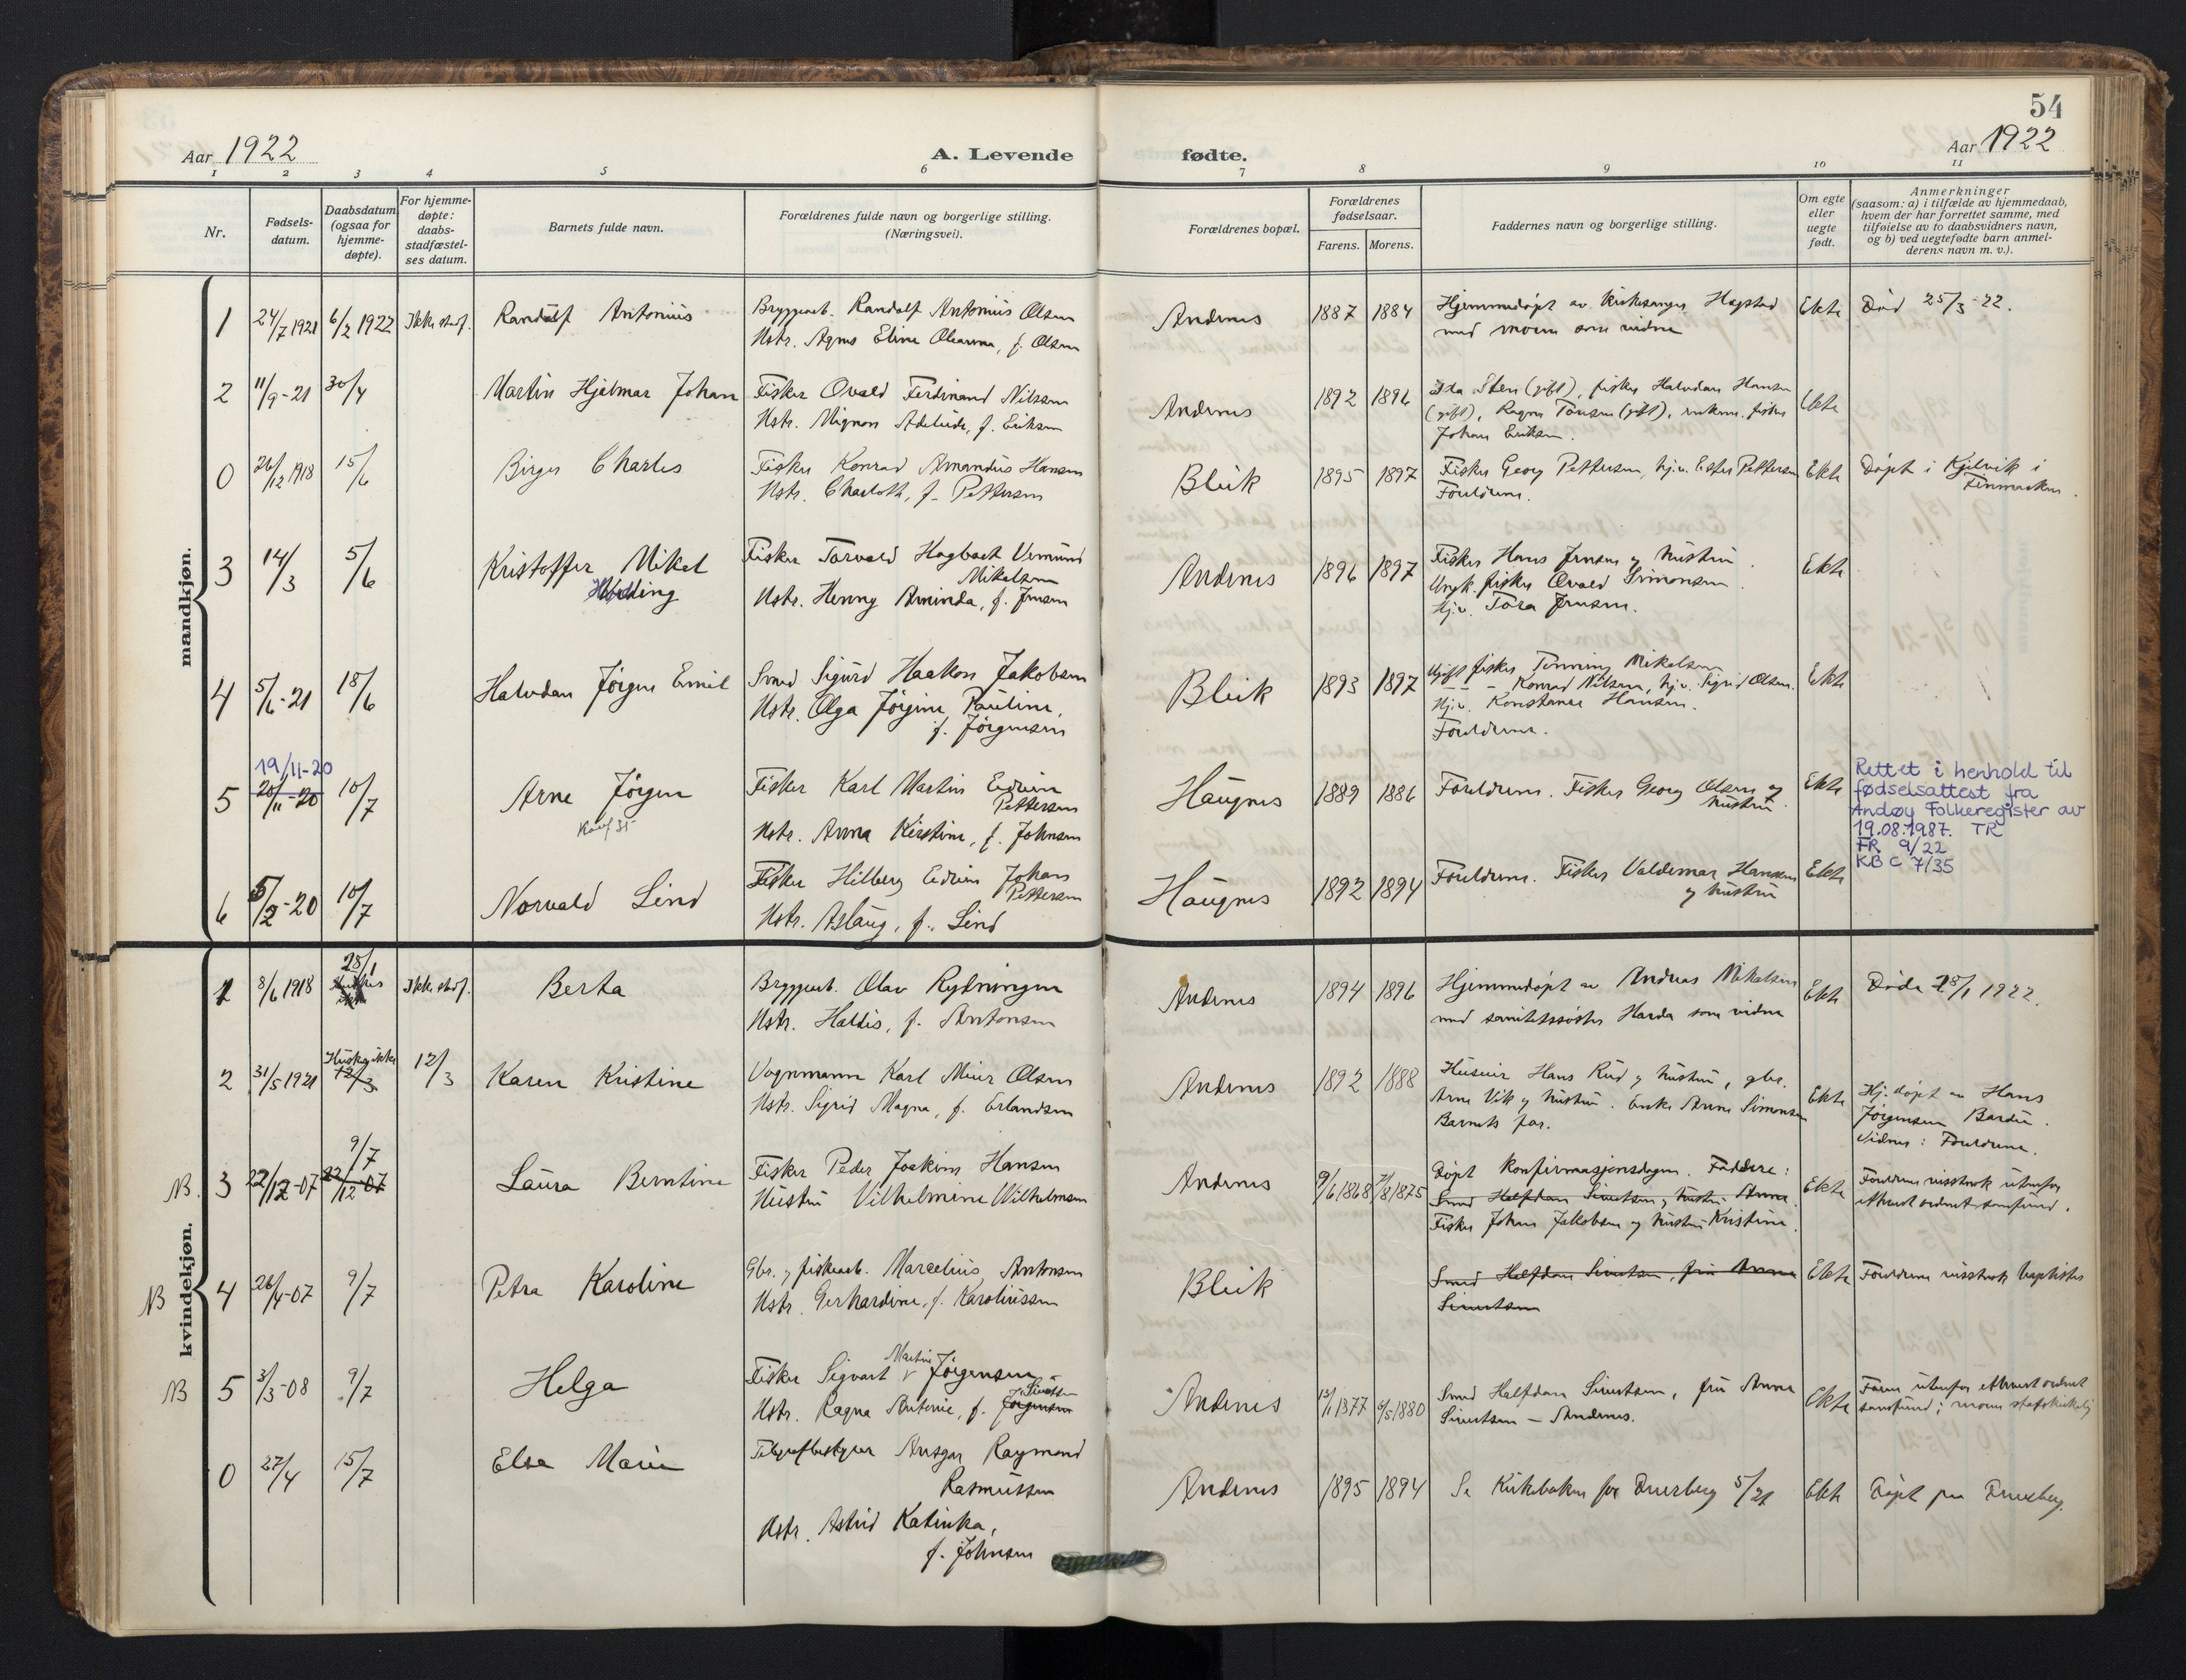 54
Aar 1922
A. Levende
fødte.
Aar 1922
1 2 3 4 5 6 7 8 9 10 11
Nr.
Fødsels-
datum.
Daabsdatum
(ogsaa for
hjemme-
døpte).
For hjemme-
døpte:
daabs-
stadfæstel-
ses datum.
Barnets fulde navn.
Forældrenes fulde navn og borgerlige stilling.
(Næringsvei).
Forældrenes bopæl.
Forældrenes
fødselsaar.
Farens. Morens.
Faddernes navn og borgerlige stilling.
Om egte
eller
uegte
født.
Anmerkninger
(saasom: a) i tilfælde av hjemmedaab,
hvem der har forrettet samme, med
tilføielse av to daabsvidners navn,
og b) ved uegtefødte barn anmel-
derens navn m. v.).
mandkjøn.
1 24/7 1921 6/2 1922 Ikke stadf. Randulf Antonius Bryggearb. Randolf Antonius Olsen
Hstr. Agnes Eline Oleanna, f. Olsen
Andenes 1887 1884 Hjemmedøpt av kirkesanger Hagstad
med moren som vidne
Ekte Død 25/3-22.
2 11/9-21 30/4 Martin Hjelmar Johan Fisker Ovald Ferdinand Nilssen
Hstr. Mignon Adeleide, f. Eriksen
Andenes 1892 1896 Sten (gift), fisker Halvdan Hansen
(gift), Ragna (gift), fisker
Johan Eriksen.
Ekte
0 26/12 1918 15/6 Birger Charles Fisker Konrad Amandus Hansen
Hstr. Charloth, f. Pettersen
Bleik 1895 1897 Fisker Georg Pettersen, hj.v. Ester Pettersen
Foreldrene.
Ekte Døpt i Kjelvik i
Finmarken.
3 14/3 5/6 Kristoffer Mikal
Hedding
Fisker Torvald Hagbart Vemund
Mikalsen
Hstr. Henny Aminda, f. Jensen
Andenes 1896 1897 Fisker Hans Jensen og hustru.
Ungk. fisker Ovald Simonsen
Hj.v. Tora Jensen.
Ekte
4 5/6-21 18/6 Halvdan Jørgen Emil Smed Sigurd Haakon Jakobsen
Hstr. Olga Jørgine Pauline,
f. Jørgensen
Bleik 1893 1897 Ugift fisker Mikalsen
— — Konrad Nilsen, hj.v. Sigrid Olsen.
Hj.v. Konstanse Hansen.
Foreldrene.
Ekte
5 19/11-20
20/11-20 10/7 Arne Jørgen
Konf 35
Fisker Karl Martin Edvin
Pettersen
Hstr. Anna Kirstine, f. Johnsen
Haugnes 1889 1886 Foreldrene. Fisker Georg Olsen og
hustru.
Ekte Rettet i henhold til
fødselsattest fra
Andøy Folkeregister av
19.08.1987. TR
FR 9/22
KB C 7/35
6 5/2-20 10/7 Norvald Lind Fisker Hilberg Edvin Johan
Pettersen
Hstr. Aslaug, f. Lind
Haugnes 1892 1894 Foreldrene. Fisker Valdemar Hansen
og hustru
Ekte
kvindekjøn.
1 8/6 1918 28/1 Ikke stadf. Berta Bryggearb. Olav Rydningen
Hstr. Haldis, f. Antonsen
Andenes 1894 1896 Hjemmedøpt av Andreas Mikalsen
med sanitetssøster Harda som vidne
Ekte Døde 28/1 1922.
2 31/5 1921 Huskes ikke
12/3 12/3 Karen Kristine Vognmann Karl Meier Olsen
Hstr. Sigrid Magna, f. Erlandsen
Andenes 1892 1888 Huseier Hans Rud og hustru, gbr.
Arne Vik og hustru. Enke Anne Simonsen
Barnets far.
Ekte Hj. døpt av Hans
Jørgensen Bardu.
Vidner: Foreldrene.
NB. 3 22/12-07 9/7
22/12-07 Laura Berntine Fisker Peder Joakim Hansen
Hustru Vilhelmine Wilhelmsen
Andenes 9/6 1868 7/8 1875 Døpt konfirmasjonsdagen. Faddere:
Smed Halfdan Sivertsen og hustru Anna.
Fisker Johan Jakobsen og hustru Kristine.
Ekte Foreldrene visstnok utenfor
ethvert ordnet samfund.
NB 4 26/4-07 9/7 Petra Karoline Gbr. og fiskearb. Marcelius Antonsen
Hstr. Gerhardine, f. Karoliussen
Bleik Smed Halfdan Sivertsen, fru Anna
Sivertsen
Ekte Foreldrene visstnok baptister
NB 5 3/3-08 9/7 Helga Fisker Sigvart Martin Jørgensen
Hstr. Ragna Antonie, f. Jørgensen Sivertsen
Andenes 13/11 1877 6/5 1880 Smed Halfdan Sivertsen, fru Anna
Sivertsen — Andenes.
Ekte Faren utenfor ethvert ordnet
samfund; moren statskirkelig
0 27/4 15/7 Else Marie Telegrafbestyrer Ansgar Raymond
Rasmussen
Hstr. Astrid Katinka,
f. Johnsen
Andenes 1895 1894 Se Kirkeboken for Dverberg 5/21 Ekte Døpt paa Dverberg.